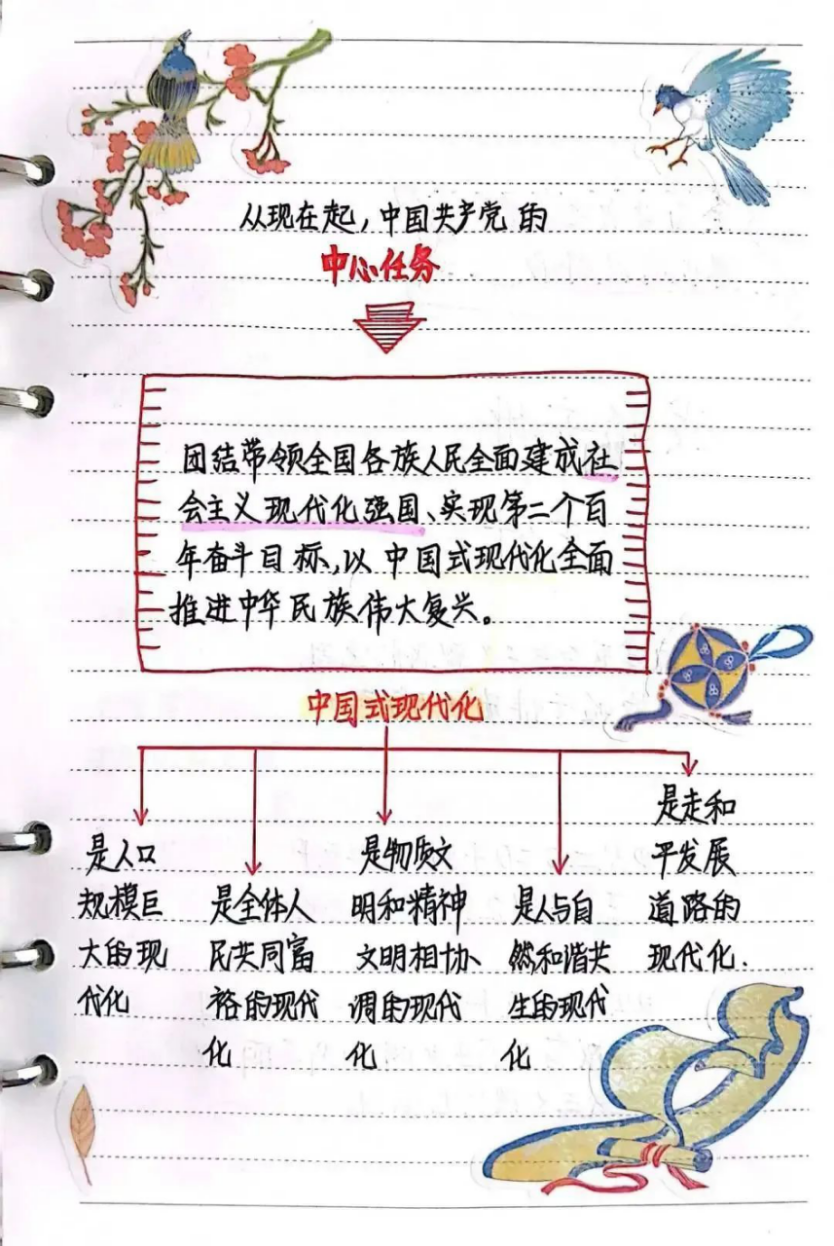 从现在起,中国共产党的
中心任务
团结带领全国各族人民全面建成社
会主义现代化强国、实现第二个百
年奋斗目标,以中国式现代化全面
推进中华民族伟大复兴。
中国式现代化
是人口
规模巨
大的现
代化
是全体人
民共同富
裕的现代
化
是物质文
明和精神
文明相协
调的现代
化
是人与自
然和谐共
生的现代
化
是走和
平发展
道路的
现代化.